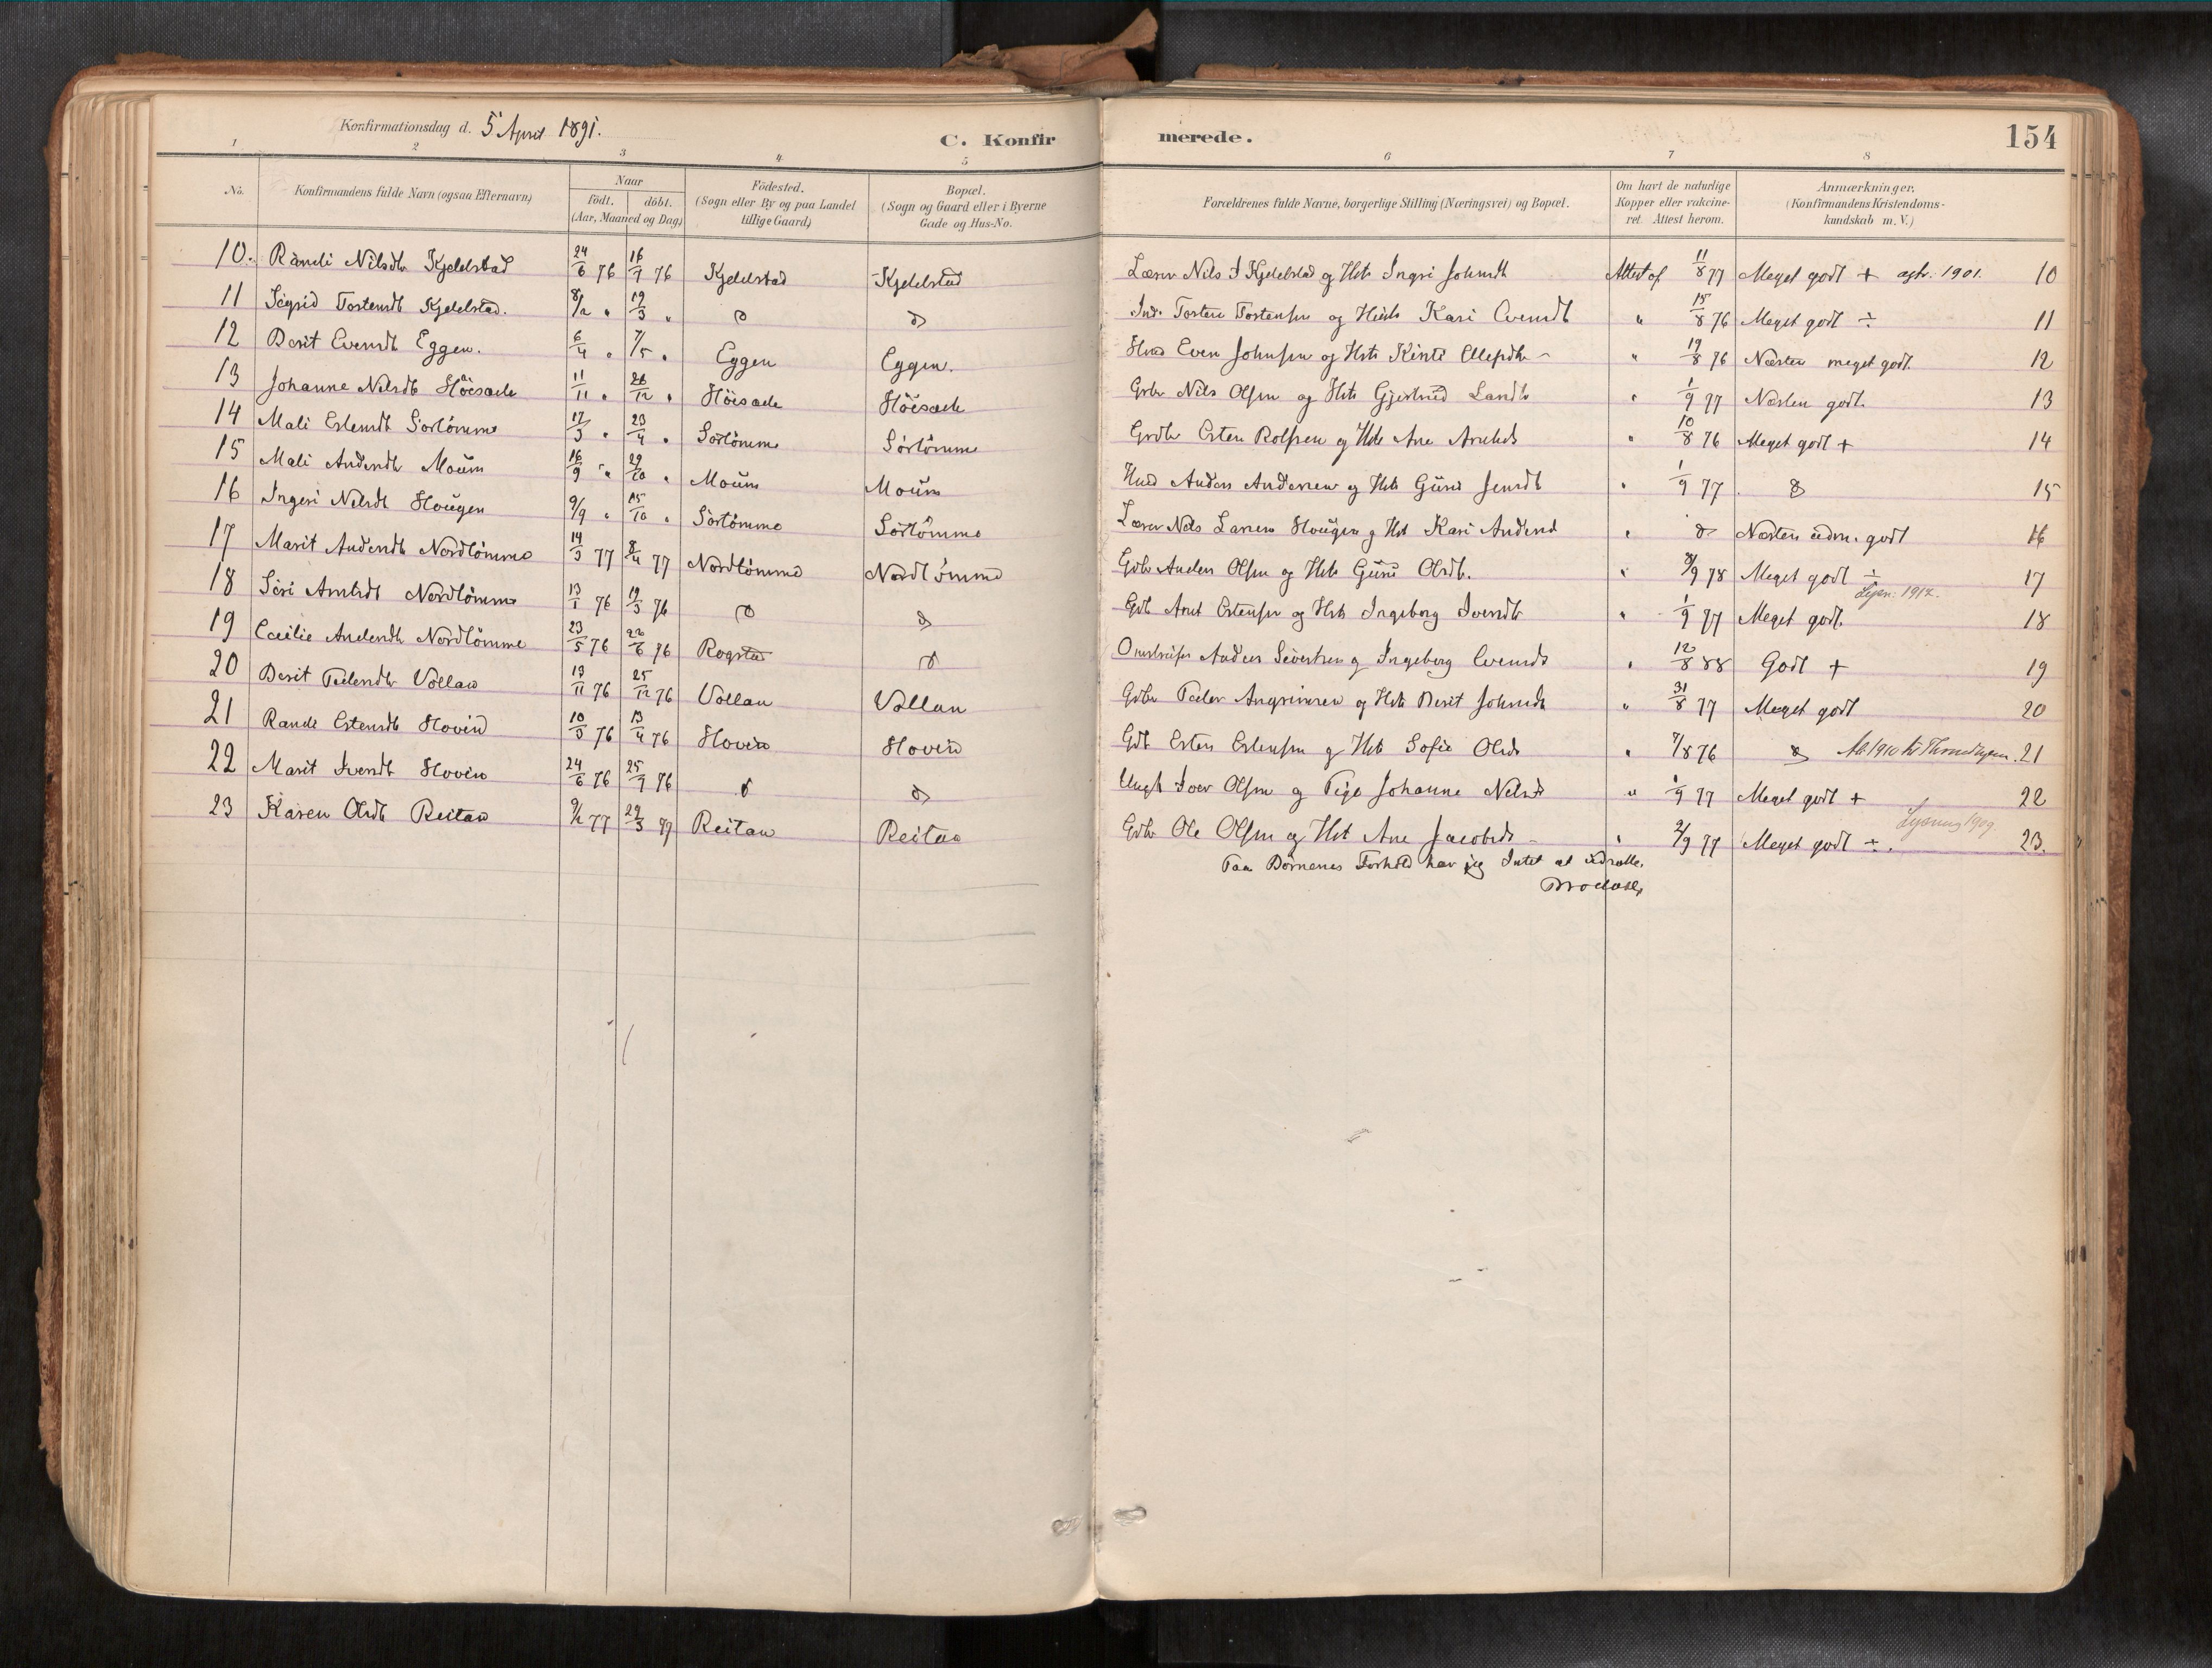 Konfirmationsdag d. 5 April 1891.
C. Konfirmerede.
154
1 2 3 4 5 6 7 8
No. Konfirmandens fulde Navn (ogsaa Efternavn) Naar født. døbt. (Aar, Maaned og Dag) Fødested. (Sogn eller By og paa Landet tillige Gaard) Bopæl. (Sogn og Gaard eller i Byerne Gade og Hus-No. Forældrenes fulde Navne, borgerlige Stilling (Næringsvei) og Bopæl. Om havt de naturlige Kopper eller vakcineret. Attest herom. Anmærkninger. (Konfirmandens Kristendomskundskab m. V.)
10. Randi Nilsdtr Kjelstad 24/6 76 16/7 76 Kjelstad Kjelstad Lærer Nils J Kjelstad og Hst Ingri Johnsdt Attest af 11/8 77 Meget godt + agtr. 1901. 10
11 Sigrid Tostensdt Kjelstad. 8/2 " 19/3 " do do Ind. Tosten Tostensen og Hst Kari Evensdt " 15/8 76 Meget godt ÷ 11
12 Berit Evensdt Eggen. 6/4 " 7/5 " Eggen Eggen. Hmd Even Johnsen og Hst Kirsti Ellefsdtr " 19/8 76 Næsten meget godt. 12
13 Johanne Nilsdt Höisæle 11/11 " 26/12 " Höisæle Höisæle Grbr Nils Olsen og Hst Gjertrud Larsdt " 1/9 77 Næsten godt. 13
14 Mali Estensdt Sörtömme 17/3 " 23/4 " Sörtömme Sörtömme Grdbr Esten Rolfsen og Hst Ane Arntsdt " 10/8 76 Meget godt + 14
15 Mali Andersdt Moum 16/9 " 29/10 " Moum Moum Hmd Anders Andersen og Hst Guri Jensdt " 1/9 77 do 15
16 Ingeri Nilsdt Hougen 9/9 " 15/10 " Sörtömme Sörtömme Lærer Nils Larsen Hougen og Hst Kari Andersd " do Næsten udm. godt 16
17 Marit Andersdt Nordtömme 14/3 77 8/4 77 Nordtömme Nordtömme Gdbr Anders Olsen og Hst Guri Olsdt. " /9 78 Meget godt ÷ Lysn: 1912. 17
18 Siri Arntsdt Nordtömme 13/1 76 19/3 76 do do Gdb Arnt Estensen og Hst Ingeborg Iversdtr " 1/9 77 Meget godt. 18
19 Cecilie Andersdt Nordtömme 23/5 76 /6 76 Rogstad do Anders Sivertsen og Ingeborg Evensdt " 12/8 88 Godt + 19
20 Berit Pedersdtr Vollan 13/11 76 25/12 76 Vollan Vollan Gdbr Peder Angrimsen og Hst Berit Johnsdt " 31/8 77 Meget godt 20
21 Randi Estensdt Hovin 10/3 76 13/4 76 Hovin Hovin Gdb Esten Estensen og Hst Sofie Olsdt " 7/8 76 do 1910 til Throndhjem. 21
22 Marit Iversdt Hovin 24/6 76 25/7 76 do do Ungk Iver Olsen og Pige Johanne Nilsdt " 1/9 77 Meget godt + 22
23 Karen Olsdt Reitan 9/2 77 /3 Reitan Reitan Gdbr Ole Olsen og Hst Ane Jacobsdt " 2/9 77 Meget godt ÷. Lysning 1909. 23.
Paa Börnenes Forhold har jeg Intet at udsætte.